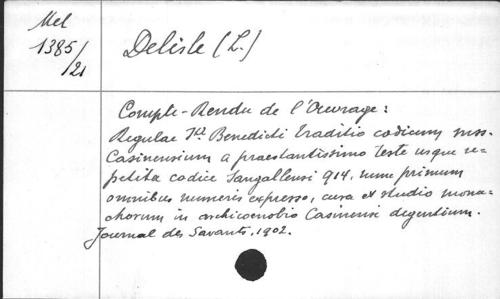 Mel
1385/21
Delisle (L.)
Compte-Rendu de l'Ouvrage:
Regulae Sti Benedicti Traditio codicum mss.
Casinensium a praestantissimo teste usque re-
petita codice Sangallensi 914, nunc primum
omnibus numeris expresso, cura et studio mona-
chorum in archicoenobio Casinensi degentium.
Journal des Savants, 1902.